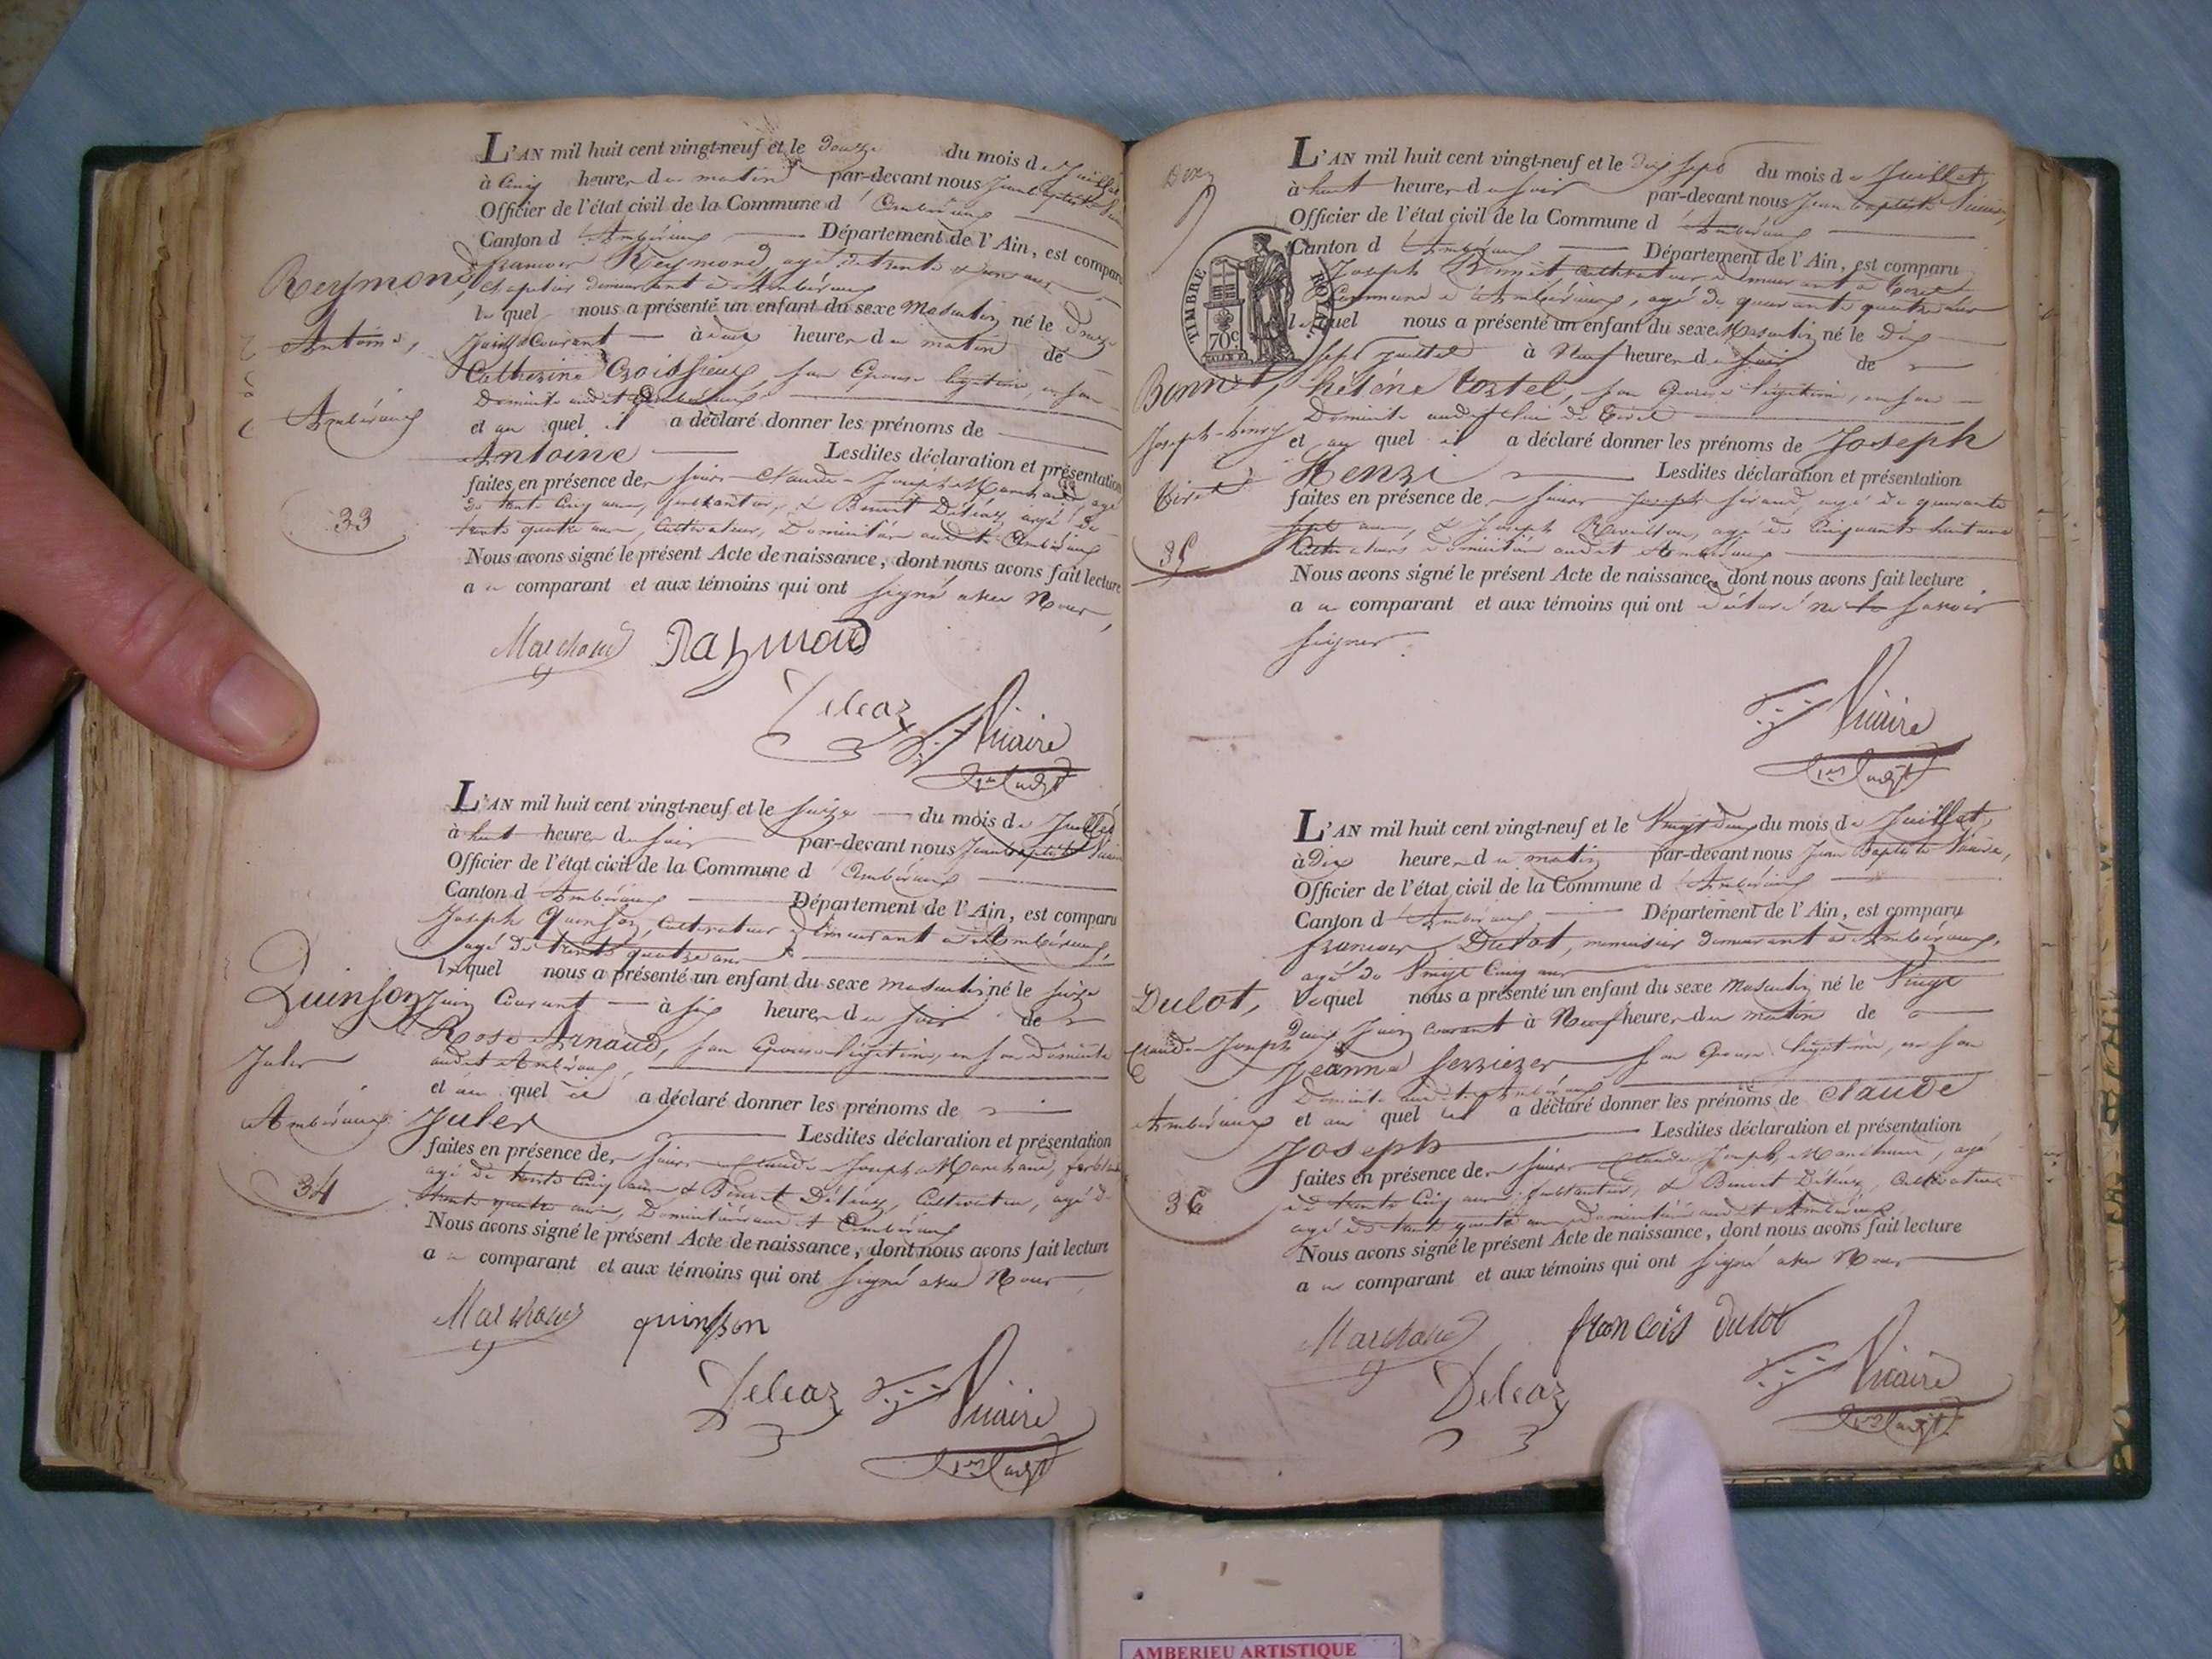 Reymond
Antoine,
Ambérieux
33
L'AN mil huit cent vingt-neuf et le Douze du mois de Juillet
à Cinq heures du matin par-devant nous Jean baptiste
Officier de l'état civil de la Commune d'Ambérieux
Canton d'Ambérieux Département de l'Ain, est comparu
françois Reymond, agé de trente & un ans
demeurant à Ambérieux
lequel nous a présenté un enfant du sexe Masculin né le Douze
Courant à deux heures du matin de
Catherine Croissieux, son Epouse légitime, en son
Domicile audit Ambérieux
et au quel il a déclaré donner les prénoms de
Antoine Lesdites déclaration et présentation
faites en présence des sieurs Claude-Joseph Marchand, agé
de trente Cinq ans, & Benoit Deléaz, agé de
trente quatre ans, Cultivateur, Domiciliés audit Ambérieux
Nous avons signé le présent Acte de naissance, dont nous avons fait lecture
au comparant et aux témoins qui ont signé avec Nous,
Marchand Raymond
Deleaz Vicaire
Quinson
Jules
Ambérieux
34
L'AN mil huit cent vingt-neuf et le seize du mois de Juillet
à huit heures du soir par-devant nous Jean baptiste
Officier de l'état civil de la Commune d'Ambérieux
Canton d'Ambérieux Département de l'Ain, est comparu
Joseph Quinson, cultivateur demeurant à Ambérieux,
agé de trente quatre ans
lequel nous a présenté un enfant du sexe masculin né le seize
Juin Courant à six heures du soir de
Rose Arnaud, son Epouse légitime, en son domicile
audit Ambérieux,
et au quel il a déclaré donner les prénoms de
Jules
Lesdites déclaration et présentation
faites en présence des sieurs Claude Joseph Marchand,
agé de trente Cinq ans & Benoit Deléaz, Cultivateur, agé de
trente quatre ans, Domiciliés audit Ambérieux
Nous avons signé le présent Acte de naissance, dont nous avons fait lecture
au comparant et aux témoins qui ont signé avec Nous
Marchand quinson
Deleaz Vicaire
TIMBRE ROYAL
70c
Bonnet,
Joseph-henry
Tiret
35
L'AN mil huit cent vingt-neuf et le Dix sept du mois de Juillet
à huit heures du soir par-devant nous Jean baptiste Vicaire,
Officier de l'état civil de la Commune d'Ambérieux
Canton d'Ambérieux Département de l'Ain, est comparu
Joseph Bonnet cultivateur demeurant à Tiret
Commune d'Ambérieux, agé de quarante quatre ans
lequel nous a présenté un enfant du sexe Masculin né le Dix
sept juillet à Neuf heures du soir de
héléne tostel, son Epouse légitime, en son
Domicile audit lieu de Tiret
et au quel il a déclaré donner les prénoms de Joseph
Henri Lesdites déclaration et présentation
faites en présence des sieurs Joseph agé de quarante
sept ans, & Joseph Ravillon, agé de Cinquante huit ans
Cultivateurs domiciliés audit Ambérieux
Nous avons signé le présent Acte de naissance, dont nous avons fait lecture
au comparant et aux témoins qui ont déclaré ne le savoir
signer.
Vicaire
Dulot,
Claude Joseph
Ambérieux
36
L'AN mil huit cent vingt-neuf et le Vingt deux du mois de Juillet,
à Dix heures du matin par-devant nous Jean Baptiste Vicaire,
Officier de l'état civil de la Commune d'Ambérieux
Canton d'Ambérieux Département de l'Ain, est comparu
françois Dulot, menuisier demeurant à Ambérieux,
agé de Vingt Cinq ans
lequel nous a présenté un enfant du sexe Masculin né le Vingt
Deux Juin courant à Neuf heures du matin de
Jeanne Serriezer, son Epouse légitime, en son
Domicile audit Ambérieux
et au quel il a déclaré donner les prénoms de Claude
Joseph Lesdites déclaration et présentation
faites en présence des sieurs Claude Joseph Marchand, agé
de trente Cinq ans, & Benoit Deléaz, Cultivateur
agé de trente quatre ans domiciliés audit Ambérieux
Nous avons signé le présent Acte de naissance, dont nous avons fait lecture
au comparant et aux témoins qui ont signé avec Nous
Marchand francois dulot
Deleaz Vicaire
AMBERIEU ARTISTIQUE